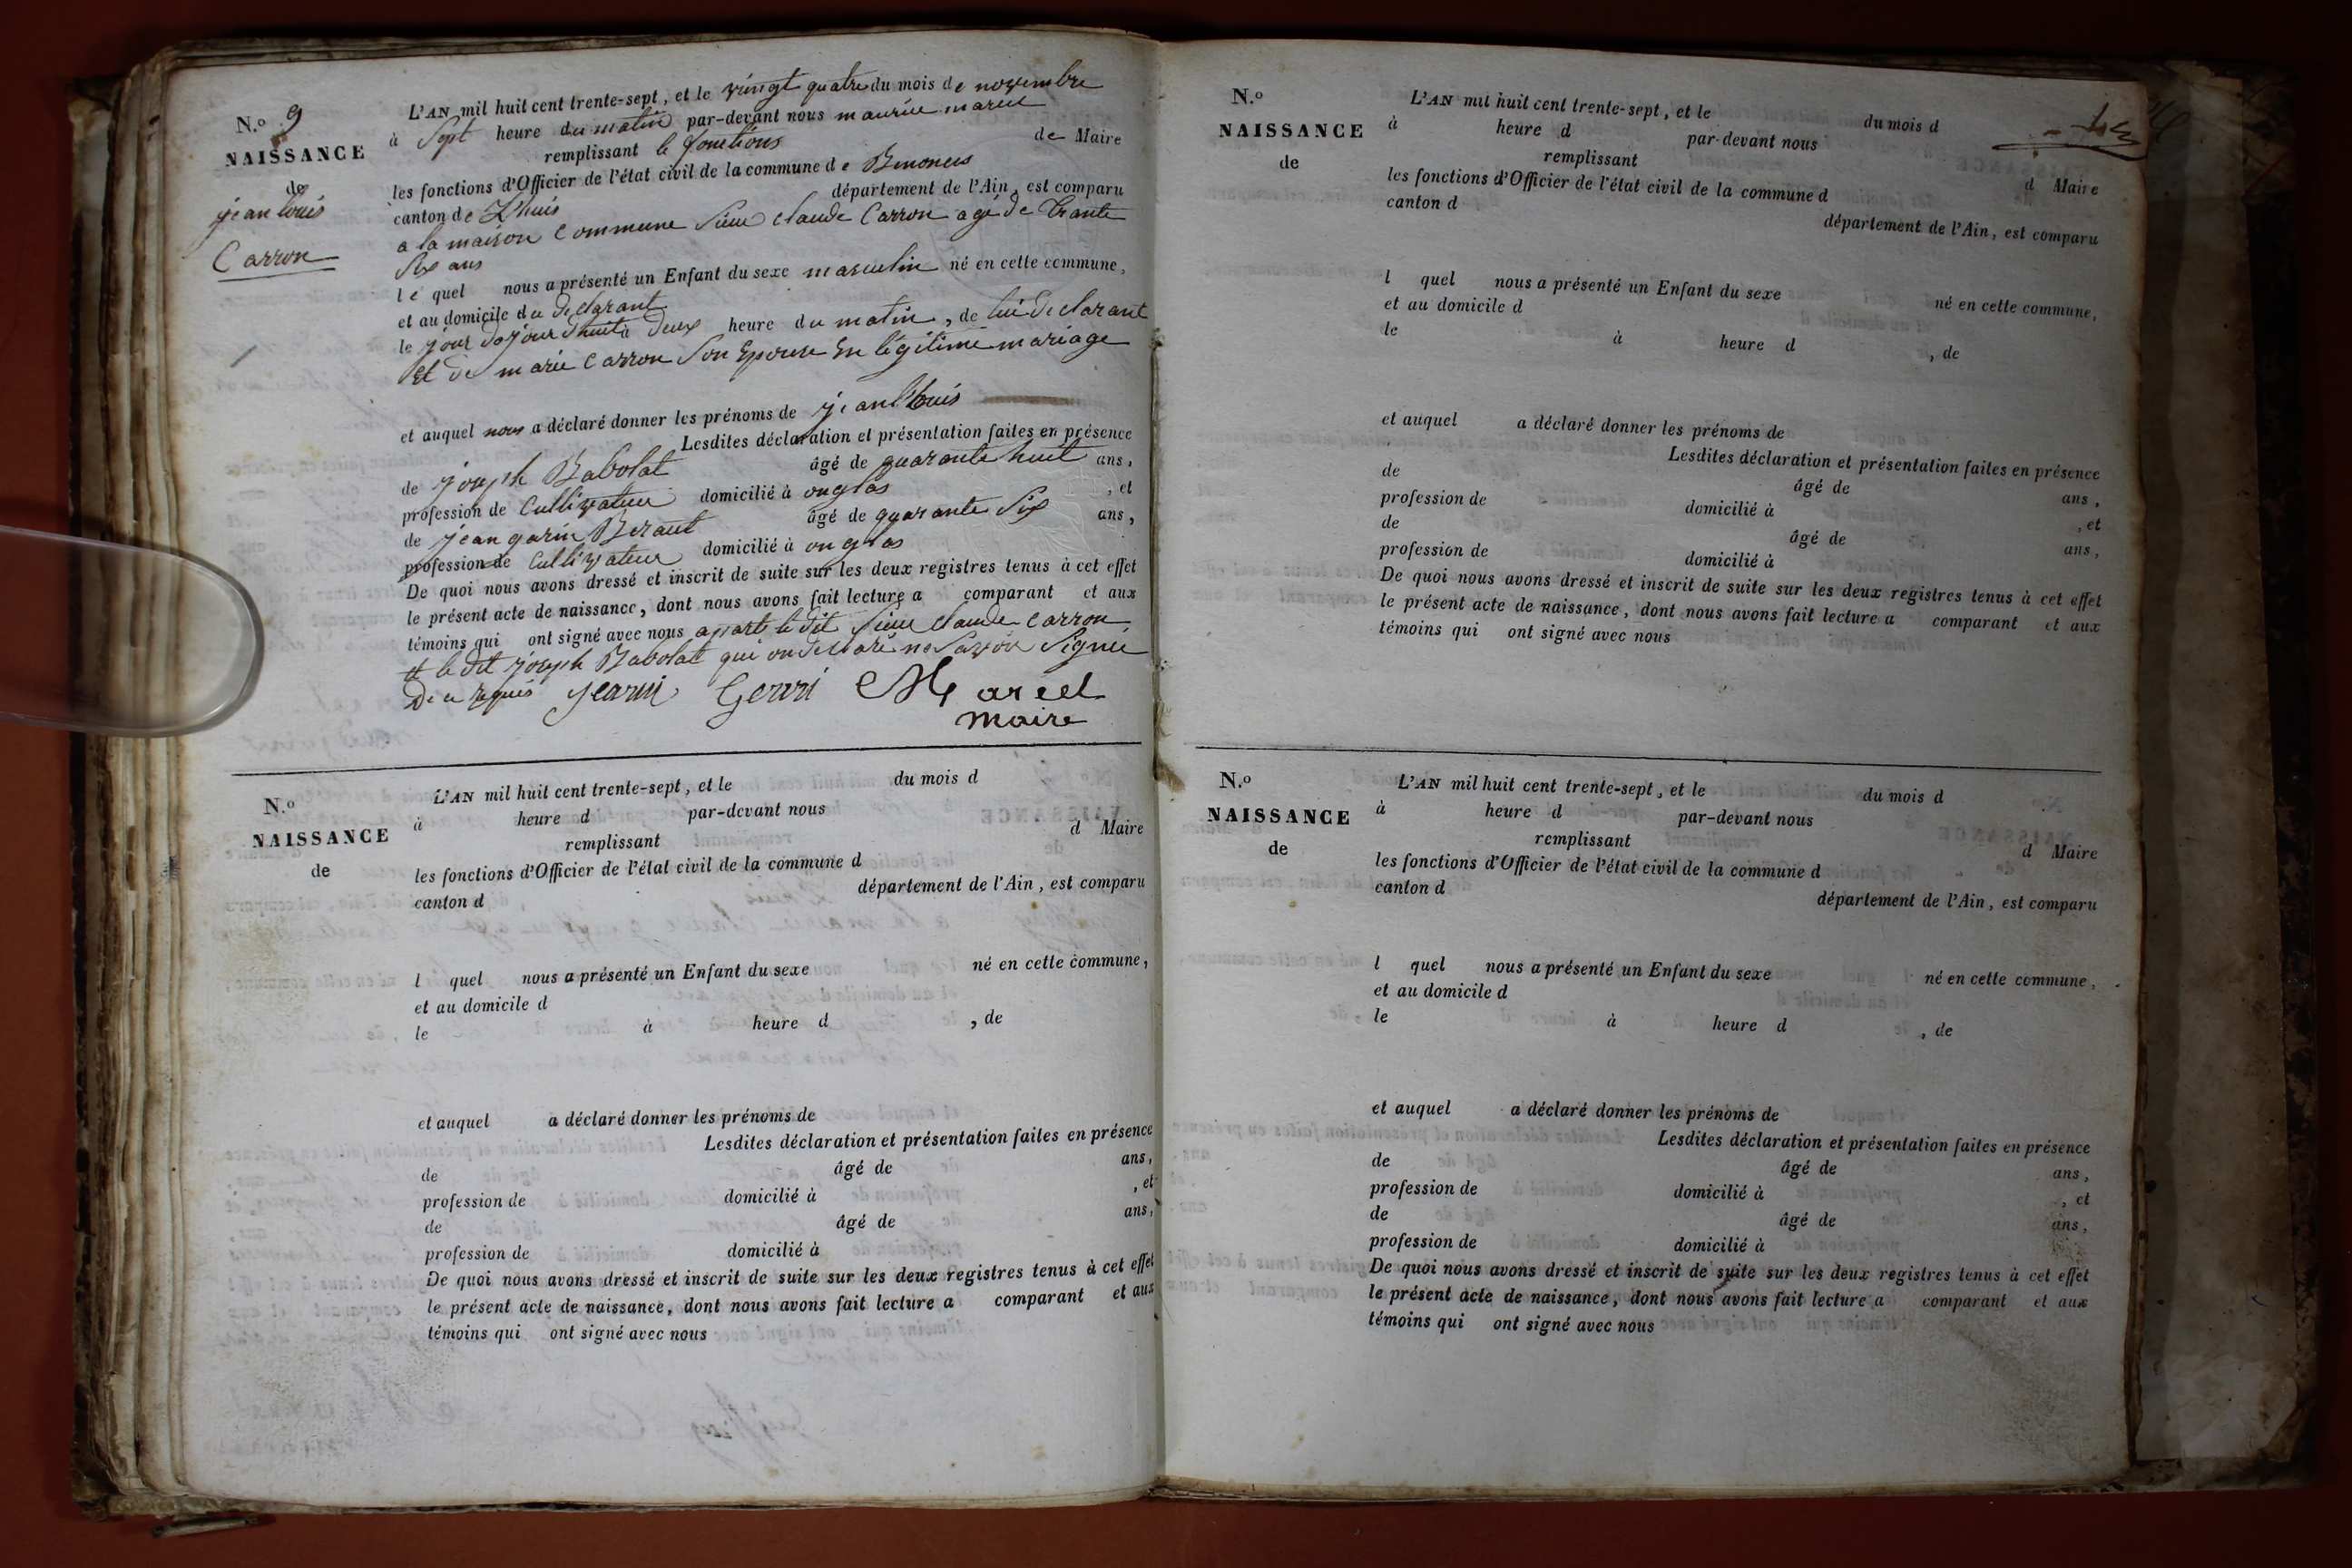 N.o 9
NAISSANCE
de
jean louis
Carron
L'AN mil huit cent trente-sept, et le vingt quatre du mois de novembre
à Sept heure du matin par-devant nous maurice marcel
remplissant le fonctions de Maire
les fonctions d'Officier de l'état civil de la commune de
canton de L'huis département de l'Ain, est comparu
a la maison Commune Sieur claude Carron agé de trante
Six ans
le quel nous a présenté un Enfant du sexe masculin né en cette commune,
et au domicile du declarant
le jour dojourdhuit à deux heure du matin, de lui declarant
et de marie Carron Son Epouse En légitime mariage
et auquel nous a déclaré donner les prénoms de jean louis
Lesdites déclaration et présentation faites en présence
de joseph Babolat âgé de quarante huit ans,
profession de Cultivateur domicilié à onglas, et
de jean garin Beraut âgé de quarante Six ans,
profession de Cultivateur domicilié à onglas
De quoi nous avons dressé et inscrit de suite sur les deux registres tenus à cet effet
le présent acte de naissance, dont nous avons fait lecture a comparant et aux
témoins qui ont signé avec nous aparts le dit Sieur claude Carron
et le dit joseph Babolat qui on declaré ne Savoir Signé
De ce requis Marcel
maire
N.o
NAISSANCE
de
L'AN mil huit cent trente-sept, et le du mois d
à heure d par-devant nous
remplissant d Maire
les fonctions d'Officier de l'état civil de la commune d
canton d département de l'Ain, est comparu
l quel nous a présenté un Enfant du sexe né en cette commune,
et au domicile d
le à heure d , de
et auquel a déclaré donner les prénoms de
Lesdites déclaration et présentation faites en présence
de âgé de ans,
profession de domicilié à , et
de âgé de ans,
profession de domicilié à
De quoi nous avons dressé et inscrit de suite sur les deux registres tenus à cet effet
le présent acte de naissance, dont nous avons fait lecture a comparant et aux
témoins qui ont signé avec nous
N.o
NAISSANCE
de
L'AN mil huit cent trente-sept, et le du mois d
à heure d par-devant nous
remplissant d Maire
les fonctions d'Officier de l'état civil de la commune d
canton d département de l'Ain, est comparu
l quel nous a présenté un Enfant du sexe né en cette commune,
et au domicile d
le à heure d , de
et auquel a déclaré donner les prénoms de
Lesdites déclaration et présentation faites en présence
de âgé de ans,
profession de domicilié à , et
de âgé de ans,
profession de domicilié à
De quoi nous avons dressé et inscrit de suite sur les deux registres tenus à cet effet
le présent acte de naissance, dont nous avons fait lecture a comparant et aux
témoins qui ont signé avec nous
N.o
NAISSANCE
de
L'AN mil huit cent trente-sept, et le du mois d
à heure d par-devant nous
remplissant d Maire
les fonctions d'Officier de l'état civil de la commune d
canton d département de l'Ain, est comparu
l quel nous a présenté un Enfant du sexe né en cette commune,
et au domicile d
le à heure d , de
et auquel a déclaré donner les prénoms de
Lesdites déclaration et présentation faites en présence
de âgé de ans,
profession de domicilié à , et
de âgé de ans,
profession de domicilié à
De quoi nous avons dressé et inscrit de suite sur les deux registres tenus à cet effet
le présent acte de naissance, dont nous avons fait lecture a comparant et aux
témoins qui ont signé avec nous